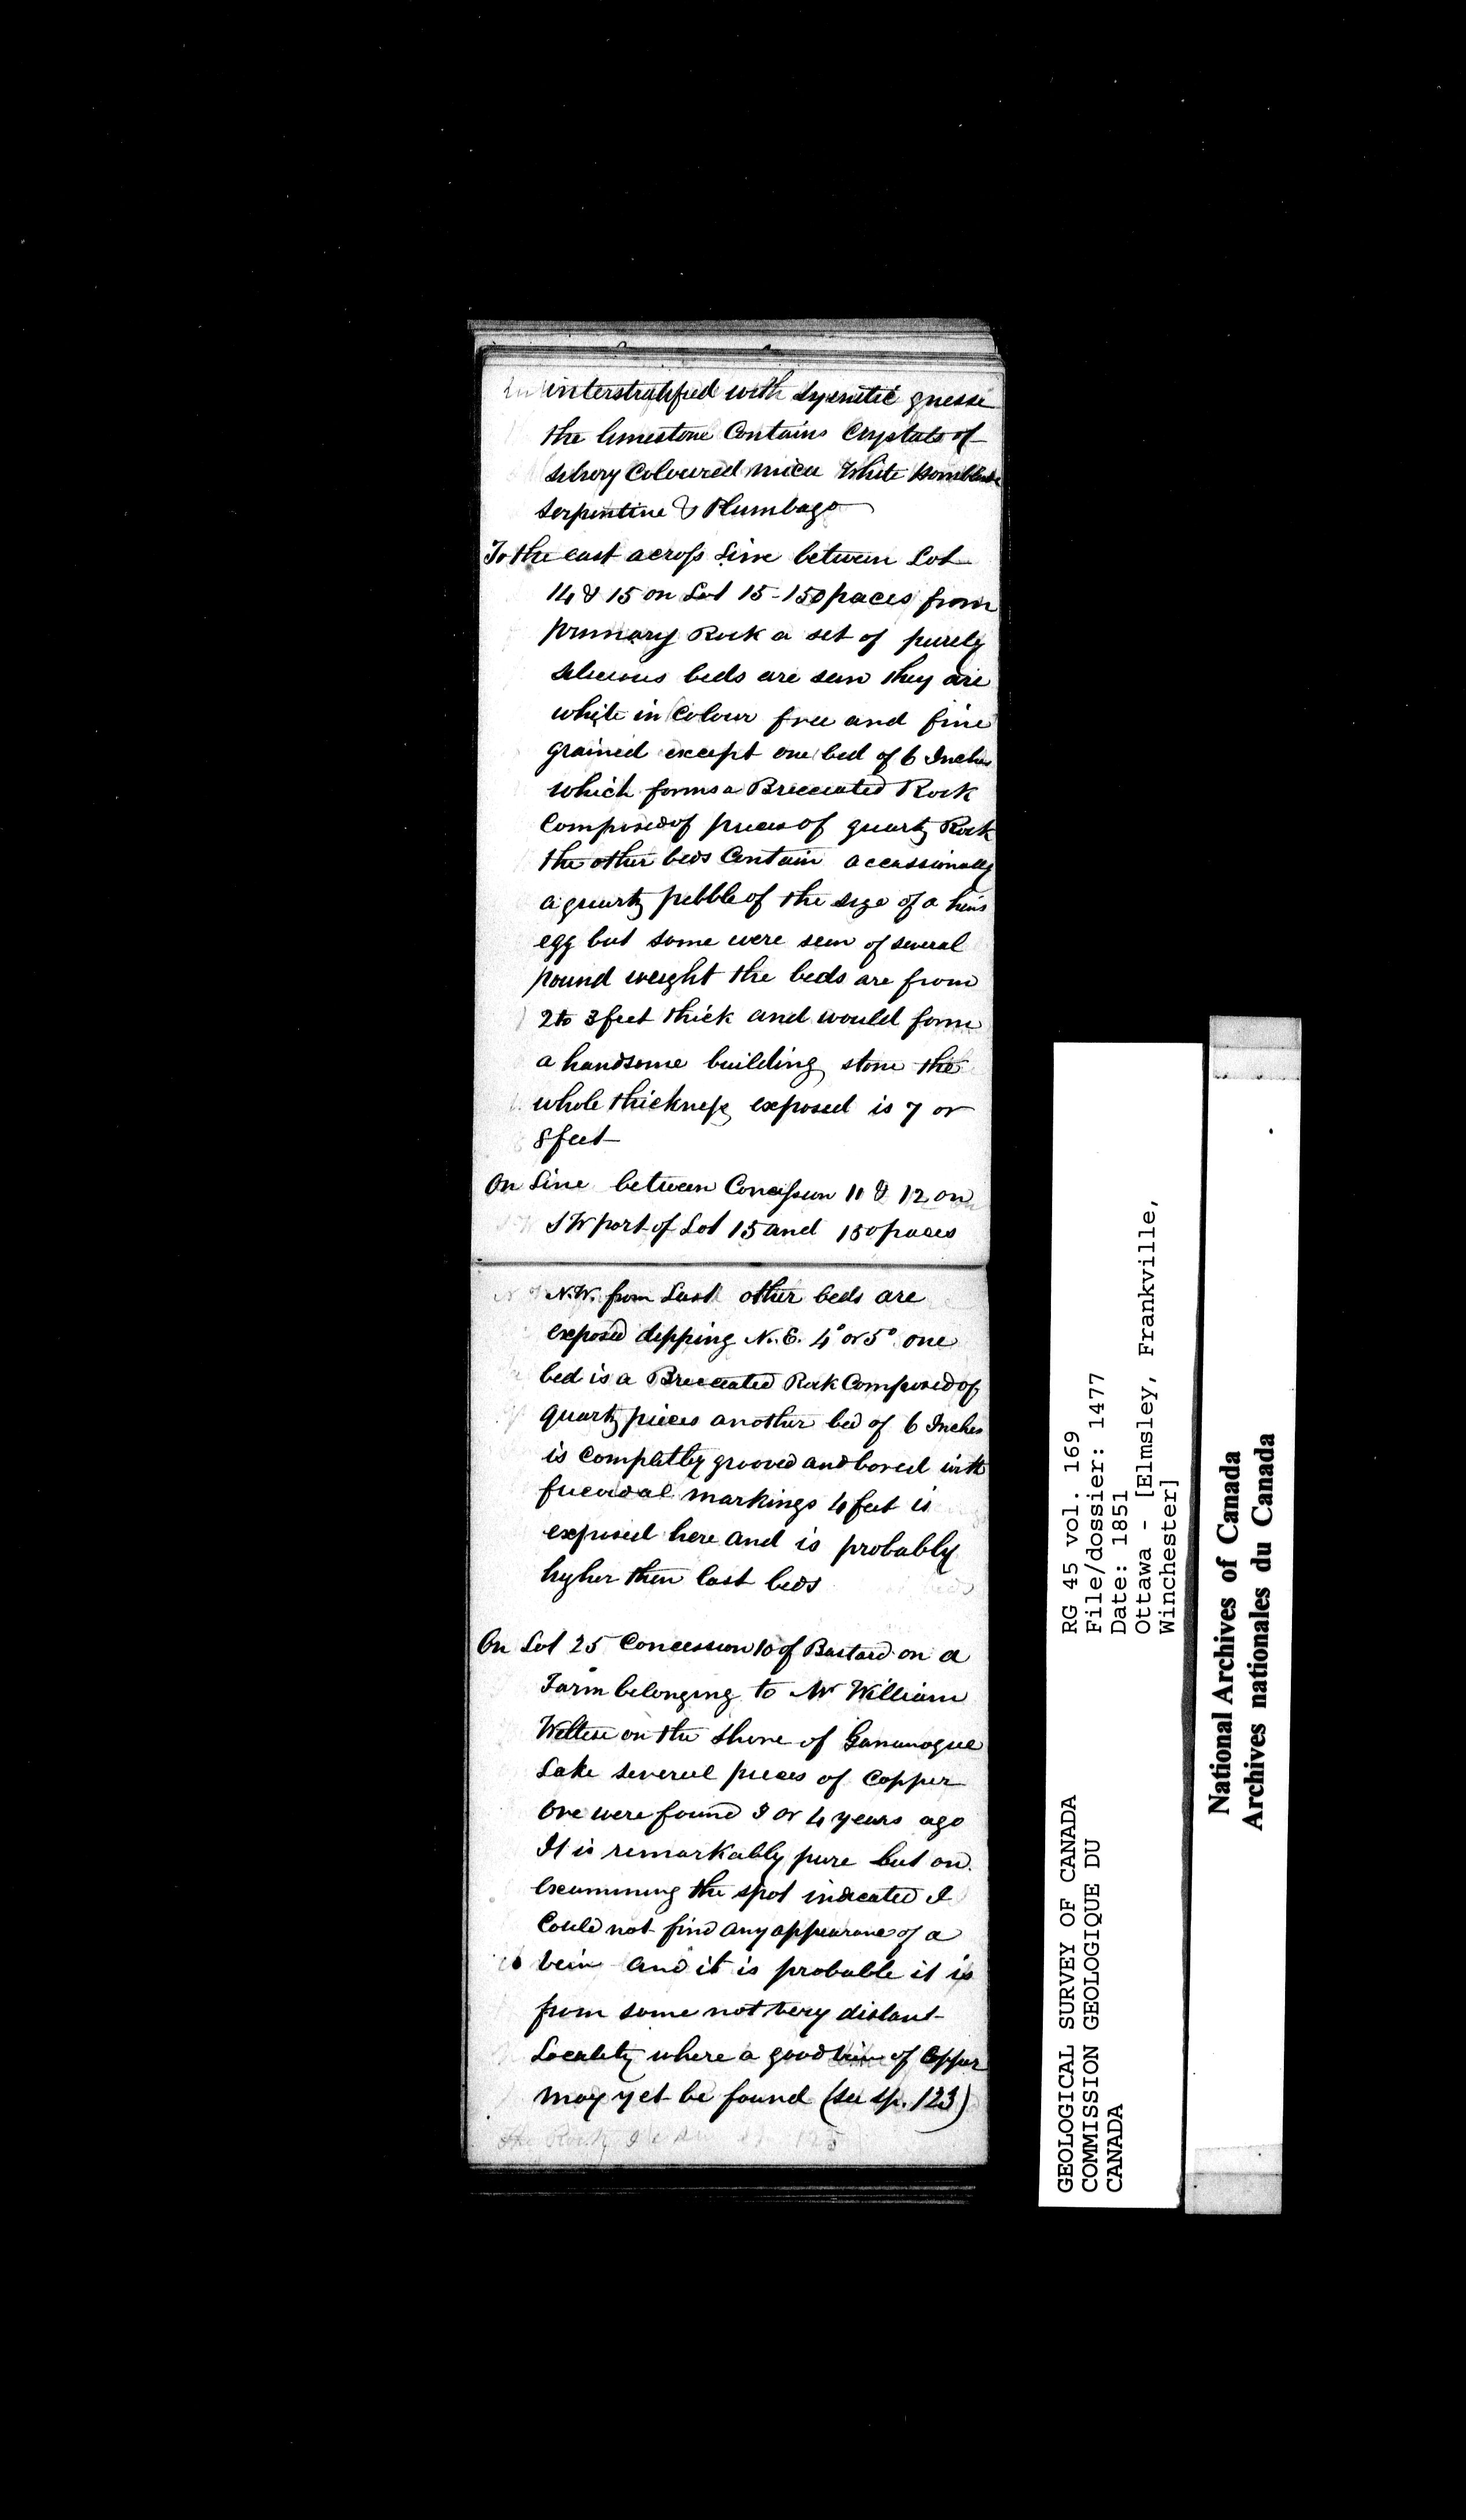 interstratified with Syenitic gnesse
the limestone Contains Crystals of
Silvery Coloured mica White Hornblende
Serpentine & Plumbago
To the east across Line between Lot
14 & 15 on Lot 15 - 150 paces from
primary Rock a set of purely
Silicious beds are seen they are
white in Colour free and fine
grained except one bed of 6 Inches
which forms a Brecciated Rock
Composed of pieces of quartz Rock
the other beds Contain accassionally
a quartz pebble of the size of a hens
egg but some were seen of several
pound weight the beds are from
2 to 3 feet thick and would form
a handsome building stone the
whole thickness exposed is 7 or
8 feet
On Line between Concession 11 & 12 on
S W part of Lot 15 and 150 paces
N.W. from Last other beds are
exposed dipping N.E. 4° or 5° one
bed is a Brecciated Rock Composed of
quartz pieces another bed of 6 Inches
is Complatly grooved and bored with
fucoidal markings 4 feet is
exposed here and is probably
higher then last beds
On Lot 25 Concession 10 of Bastard on a
Farm belonging to Mr William
on the Shore of Gananogue
Lake several pieces of Copper
Ore were found 3 or 4 years ago
It is remarkably pure but on
examining the spot indicated I
Could not find any appearance of a
vein and it is probable it is
from some not very distant
Locality where a good vein of Copper
may yet be found (see sp. 123)
GEOLOGICAL SURVEY OF CANADA
COMMISSION GEOLOGIQUE DU
CANADA
RG 45 vol. 169
File/dossier: 1477
Date: 1851
Ottawa - [Elmsley, Frankville,
Winchester]
National Archives of Canada
Archives nationales du Canada